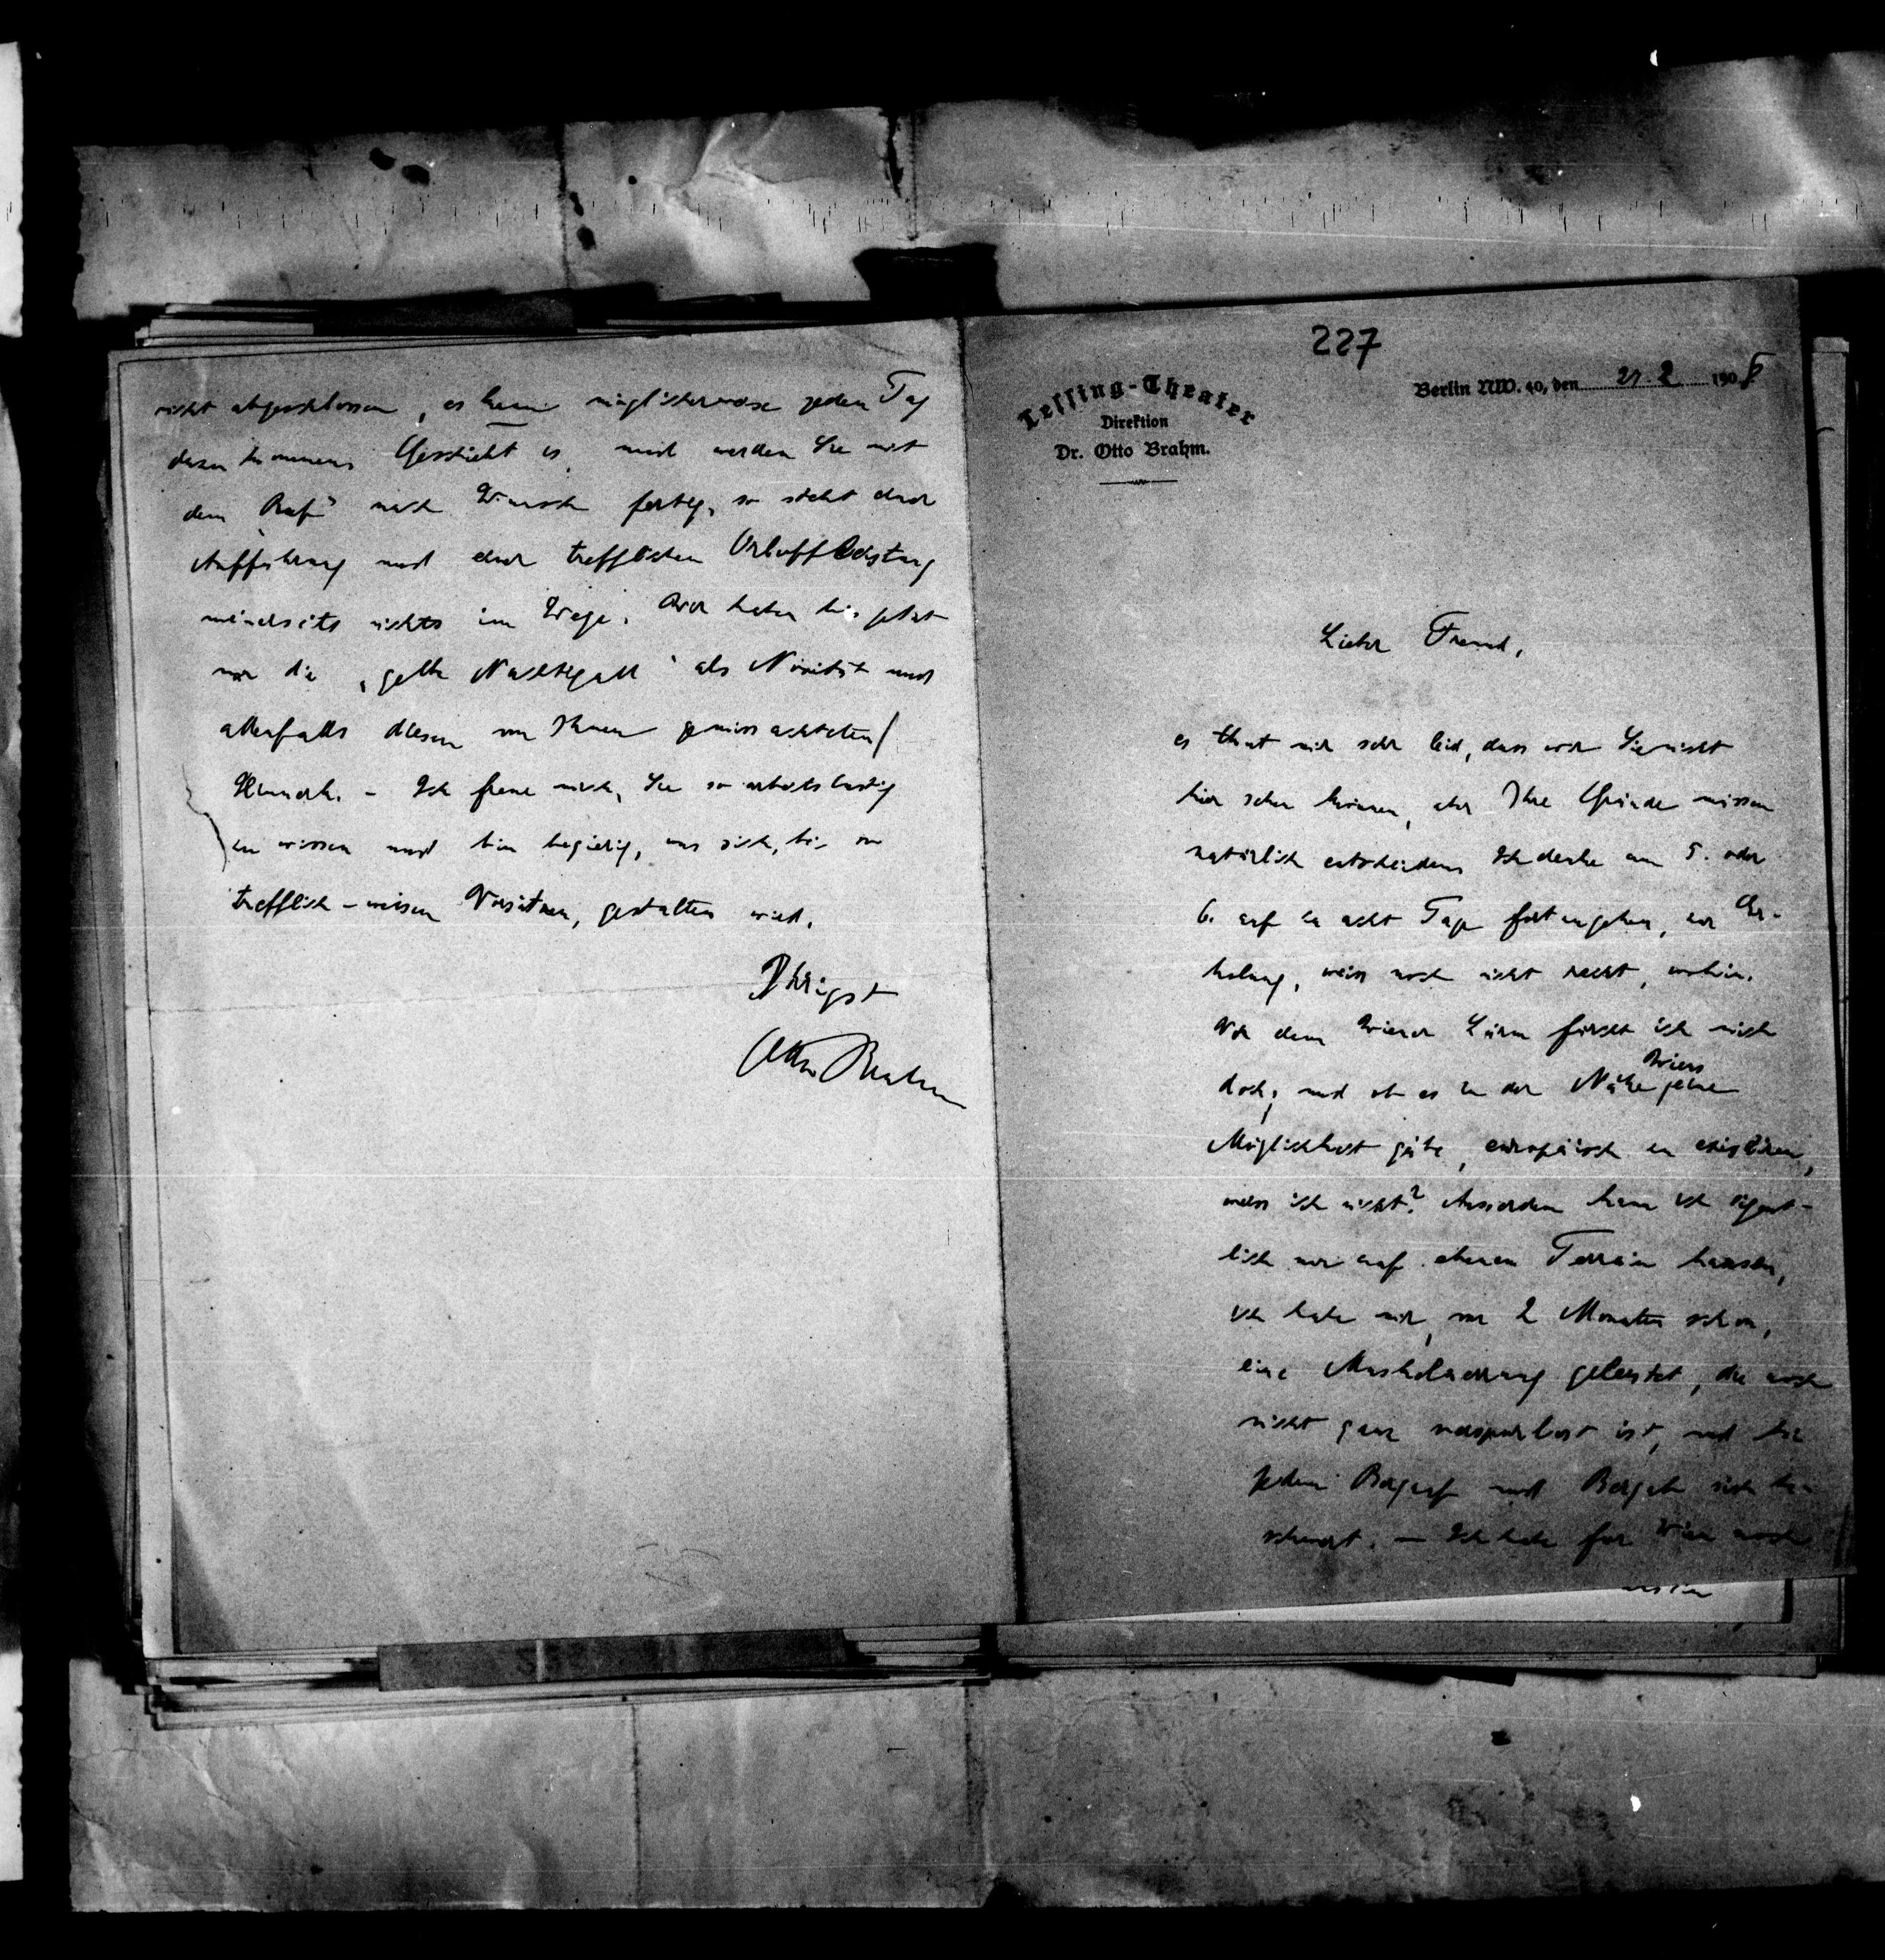 227
Lessing-Theater
Direktion
Dr. Otto Brahm.
Berlin NW. 40, den 21. 2 1908
Lieber Freund,
es thut mir sehr leid, dass wir Sie nicht
hier sehen können, aber Ihre Gründe müssen
natürlich entscheiden. Ich denke am 5. oder
6. auf ca acht Tage fortzugehen, zur Er-
holung, weiss noch nicht recht, wohin.
Vor dem Wiener Lärm fürcht ich mich
doch; und ob es in der Nähe Wiens jene
Möglichkeit gäbe, europäisch zu existiren,
weiss ich nicht? Ausserdem kann ich eigent-
lich nur auf ebenem Terrain hausen,
ich habe mir, vor 2 Monaten schon,
eine Muskelzerrung geleistet, die noch
nicht ganz ist, und bei
jedem Bergauf und Bergab sich be-
schwert. — Ich habe für Wien noch
nicht abgeschlossen, es kann möglicherweise jeden Tag
dazu kommen. Geschieht es, und werden Sie mit
dem „Ruf" nach Wunsch fertig, so steht der
Aufführung und der trefflichen Orloff
meinerseits nichts im Wege. Wir haben bis jetzt
nur die „gelbe Nachtigall" als Novität und
allenfalls diesen von Ihnen gemissachteten
Hinnerk. – Ich freue mich, Sie so arbeitslustig
zu wissen und bin begierig, was sich, bei so
trefflich-weisen Vorsätzen, gestalten wird.
Ihrigst
Otto Brahm